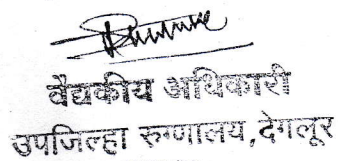 वैद्यकीय अधिकारी
उपजिल्हा रुग्णालय, देगलूर